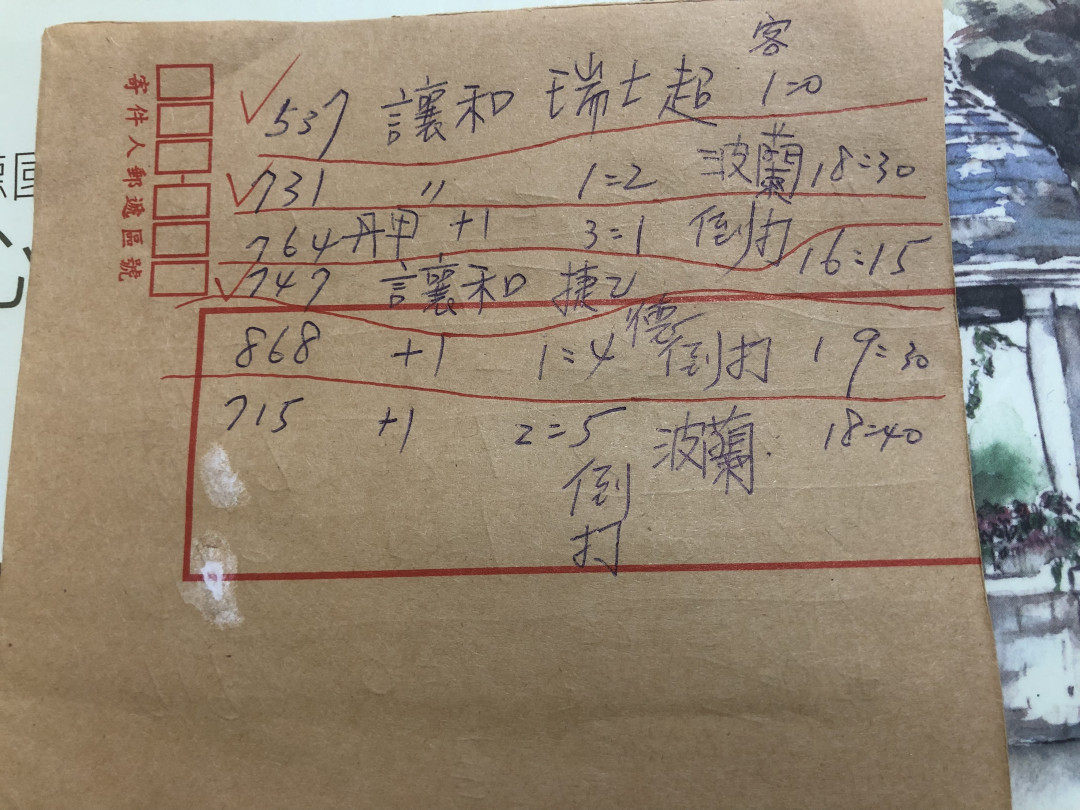 客
537 讓和 瑞士超 1=0
731 〃 1=2 波蘭 18=30
764 丹甲 +1 3=1 倒打 16=15
747 讓和 捷乙
868 +1 1=4 德 倒打 19=30
715 +1 2=5 波蘭 18=40
倒打
寄件人郵遞區號
德國